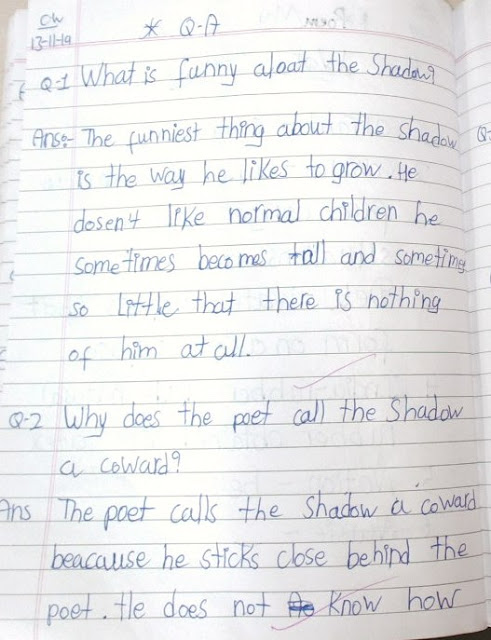 CW
13-11-19
* Q-A
Q-1 What is funny aloat the Shadow?
Ans:- The funniest thing about the shadow
is the way he likes to grow. He
dosen4 like normal children he
sometimes becomes tall and sometimes
so little that there is nothing
of him at all.
Q-2 Why does the poet call the Shadow
a coward?
Ans The poet calls the Shadow a coward
beacause he sticks close behind the
poet. He does not know how